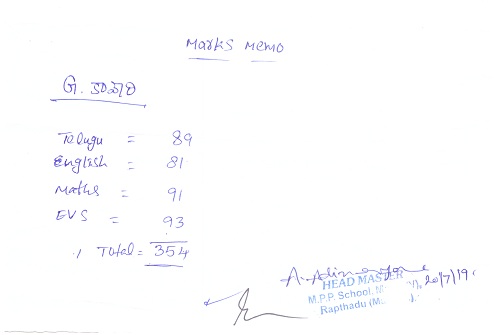 Marks Memo
G.
Telugu = 89
English = 81
Maths = 91
EVS = 93
∴ Total = 354
20/7/19.
HEAD MASTER
M.P.P. School,
Rapthadu